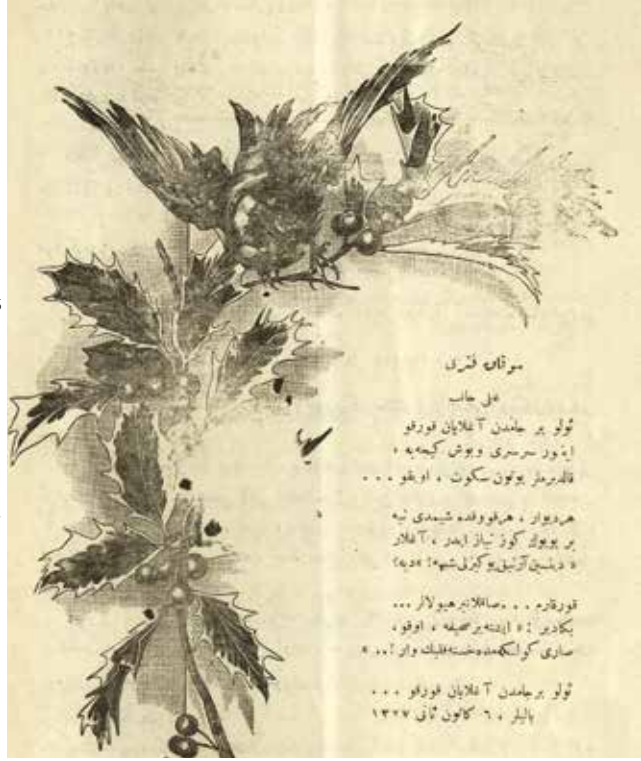 سوقاق فنری
علی جانب
ئولو بر جامدن آغلایان قورقو
اینیور سرسری وبوش كیجه یه ،
قالدیرملر بوتون سكوت ، اویقو . . .
هر دیوار ، هر قووقده شیمدی نیه
بر بویوك كوز نیاز ایدر ، آغلار
قورقارم . . . صاقلانیر هیولالر ...
بكا دیر : « ایشته بر صحیفه ، اوقو ،
صاری كولكه مده خسته لیك وار !.. »
ئولو بر جامدن آغلایان قورقو . . .
۶ كانون ثانی ۱۳۲۷